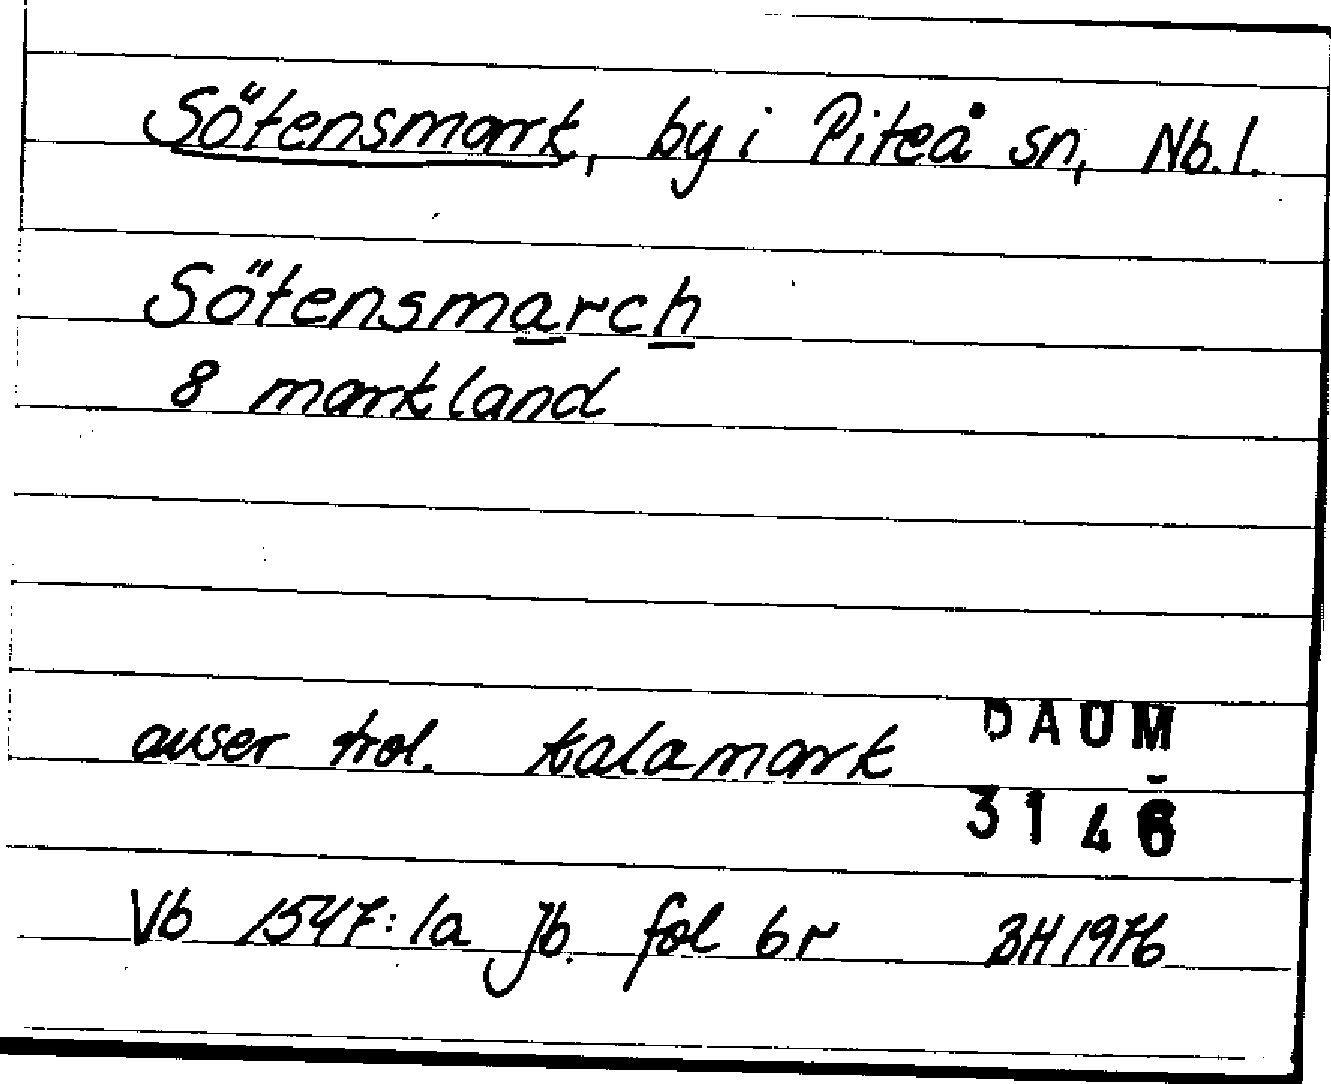 Sötensmark, by i Piteå sn, Nb. l.
Sötensmarch
8 markland
avser trol. Kalamark
DAUM
3146
Vb 1547:1a Jb. fol 6r BH 1976